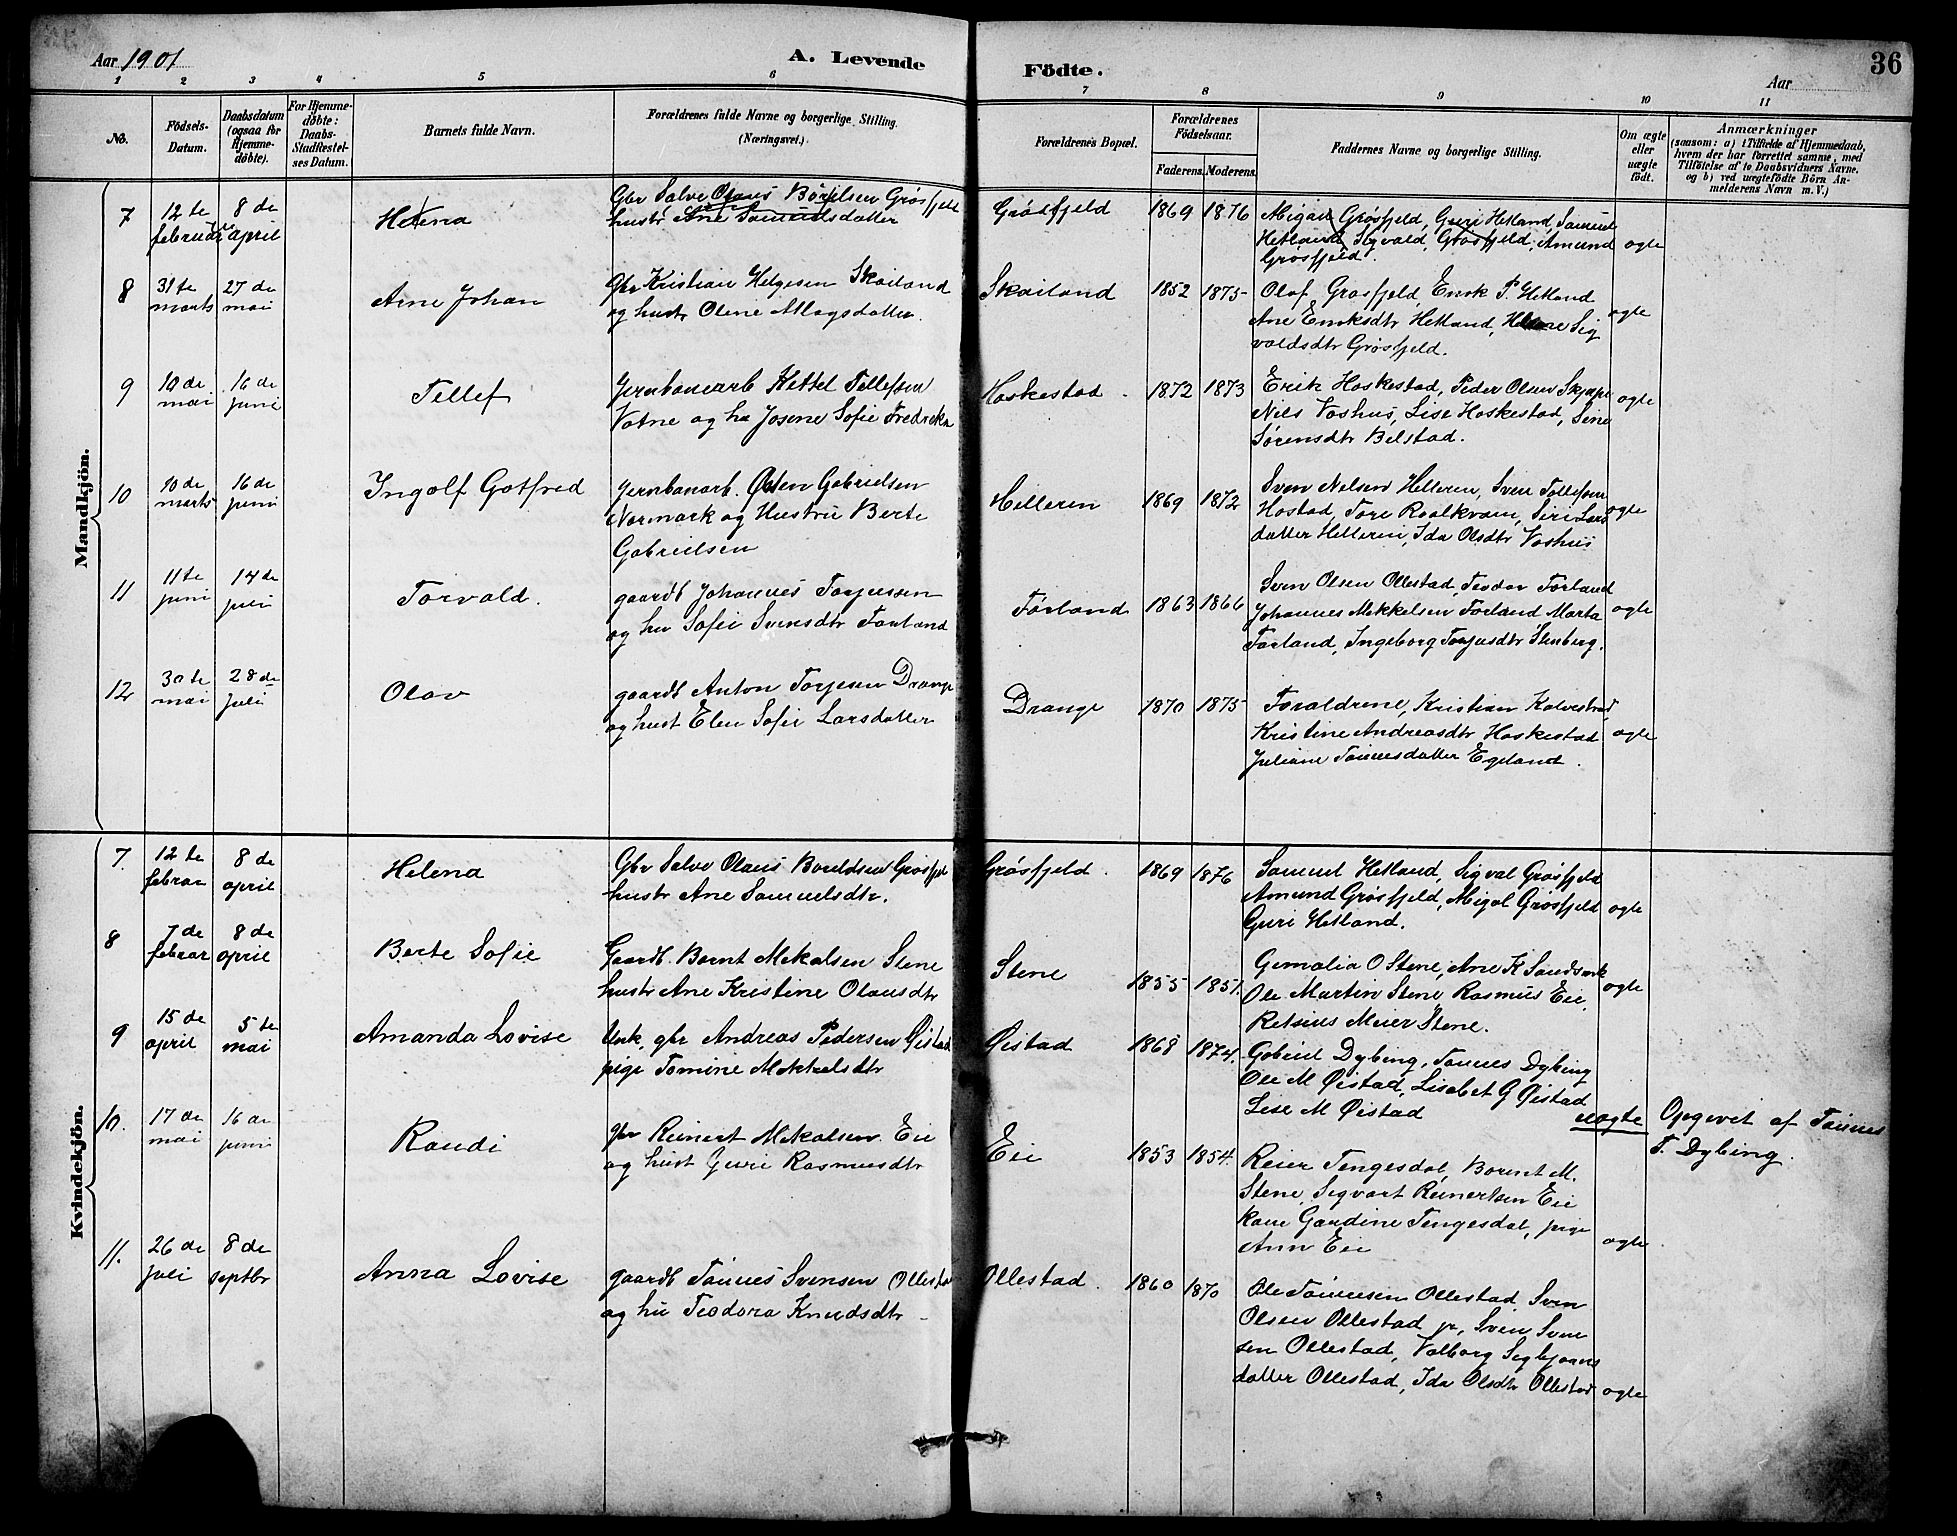 Aar 1901
A. Levende
Födte.
Aar
36
1 2 3 4 5 6 7 8 9 10 11
No.
Födsels-
Datum.
Daabsdatum
(ogsaa for
Hjemme-
döbte).
For Hjemme-
döbte:
Daabs-
Stadfæstel-
ses Datum.
Barnets fulde Navn.
Forældrenes fulde Navne og borgerlige Stilling.
(Næringsvei.)
Forældrenes Bopæl.
Forældrenes
Födselsaar.
Faderens. Moderens.
Faddernes Navne og borgerlige Stilling.
Om ægte
eller
uægte
födt.
Anmærkninger
(saasom: a) i Tilfælde af Hjemmedaab,
hvem der har forrettet samme, med
Tilföielse af to Daabsvidners Navne,
og b) ved uægtefödte Börn An-
melderens Navn m. V.)
Mandkjön.
7
12 te
februar
8 de
april
Helena
Gbr Salve Olaus Grøsfjeld
hustr Ane Samuelsdatter
Grøsfjeld
1869 1876
Migael Grøsfjeld, Guri Hetland, Samuel
Hetland Sigvald Grøsfjeld, Amund
Grøsfjeld.
ægte
8
31 te
marts
27 de
mai
Arne Johan
Gbr Kristian Helgesen Skailand
og hustr Olene Alagsdatter.
Skailand
1852 1875
Olof Grøsfjeld, Enok P. Hetland
Ane Enoksdtr Hetland, Helene Sig
valdsdtr Grøsfjeld.
ægte
9
10 de
mai
16 de
juni
Tellef
Jernbanearb Kittel Tellefsen
Votne og hu Josene Sofie Fredrekn
Hoskestad.
1872 1873
Erik Hoskestad, Peder Olsen Skjæpe
Nils Voshus, Lise Hoskestad, Sine
Sørensdtr Belstad.
ægte
10
10 de
marts
16 de
juni
Ingolf Gotfred
Jernbanarb. Østen Gabrielsen
Normark og Hustru Berte
Gabrielsen
Helleren
1869 1872
Sven Nelsen Helleren, Sven Tollefsen
Hostad, Tore Roalkvam, Siri Lars
datter Helleren, Ida Olsdtr Voshus
ægte
11
11 te
juni
14 de
juli
Torvald.
gaardb Johannes Torjussen
og hu Sofie Svensdtr Førland
Førland
1863 1866
Sven Olsen Ollestad, Teodor Førland
Johannes Mikkelsen Førland Marta
Førland, Ingeborg Torjusdtr Stenberg.
ægte
12
30 te
mai
28 de
juli
Olav
gaardb Anton Torjesen Drange
og hust Elen Sofie Larsdatter
Drange
1870 1875
Foraldrene, Kristian Kalvestrad,
Kristine Andreasdtr Hoskestad
Juliane Tønnesdatter Egeland.
ægte
Kvindekjön.
7.
12 te
februar
8 de
april
Helena
Gbr Salve Olaus Bouldsen Grøsfjeld
hustr Ane Samuelsdtr.
Grøsfjeld.
1869 1876
Samuel Hetland, Sigval Grøsfjeld
Amund Grøsfjeld, Migal Grøsfjeld
Guri Hetland.
ægte
8
7 de
februar
8 de
april
Berte Sofie
Gaardb. Bornt Mekalsen Stene
hustr Ane Kristine Olausdtr
Stene
1855 1857.
Gemalia O Stene, Ane K Sandsmk
Ole Martin Stene, Rasmus Eie,
Retsius Meier Stene.
ægte
9
15 de
april
5 te
mai
Amanda Lovise
Unk, gbr Andreas Pedersen Øistad
pige Tomine Mikkelsdtr
Øistad
1868 1874.
Gabriel Dybing, Tønnes Dybing
Ole M Øistad, Lisabet G Øistad
Lise M Øistad
uægte
Opgevet af Tønnes
T. Dybing.
10.
17 de
mai
16 de
juni
Randi
gbr Reinert Mekalsen Eie
og hust Guri Rasmusdtr
Eie
1853 1854.
Reier Tengesdal, Bornt M.
Stene, Sigvart Reinertsen Eie
Kone Gaudine Tengesdal, pige
Ann Eie
ægte
11.
26 de
juli
8 de
septbr
Anna Lovise
gaardb Tønnes Svensen Ollestad
og hu Teodora Knudsdtr
Ollestad.
1860 1870
Ole Tønnesen Ollestad, Sven
Olsen Ollestad jr, Sven Sven
sen Ollestad, Valborg Sigbjørns
datter Ollestad, Ida Olsdtr Ollestad
ægte